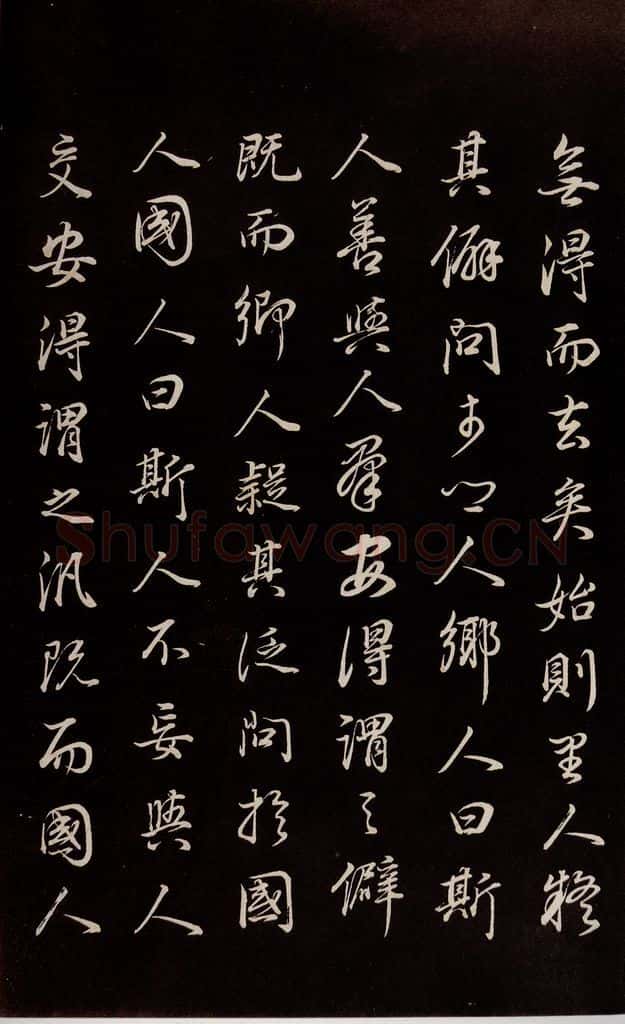 無得而去矣始則里人疑
其僻問于鄉人鄉人曰斯
人善與人羣安得謂之僻
既而鄉人疑其泛問於國
人國人曰斯人不妄與人
交安得謂之汎既而國人
Shufawang.CN